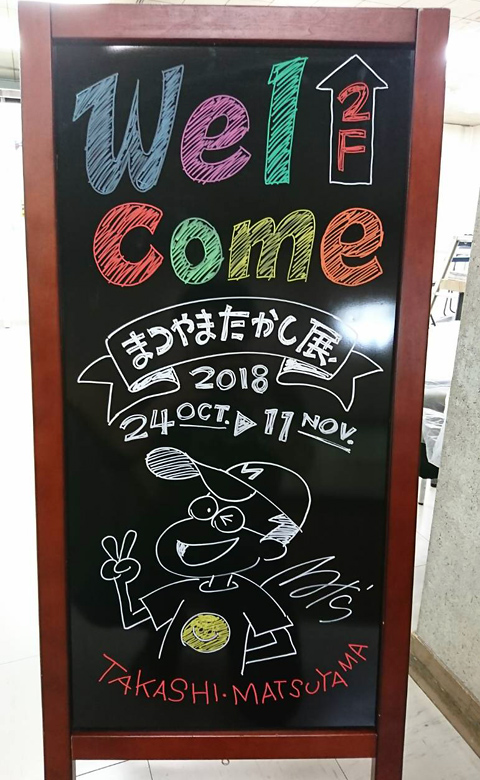 Wel
2F
come
まつやまたかし展
2018
24 OCT. ▶ 11 NOV.
TAKASHI・MATSUYAMA